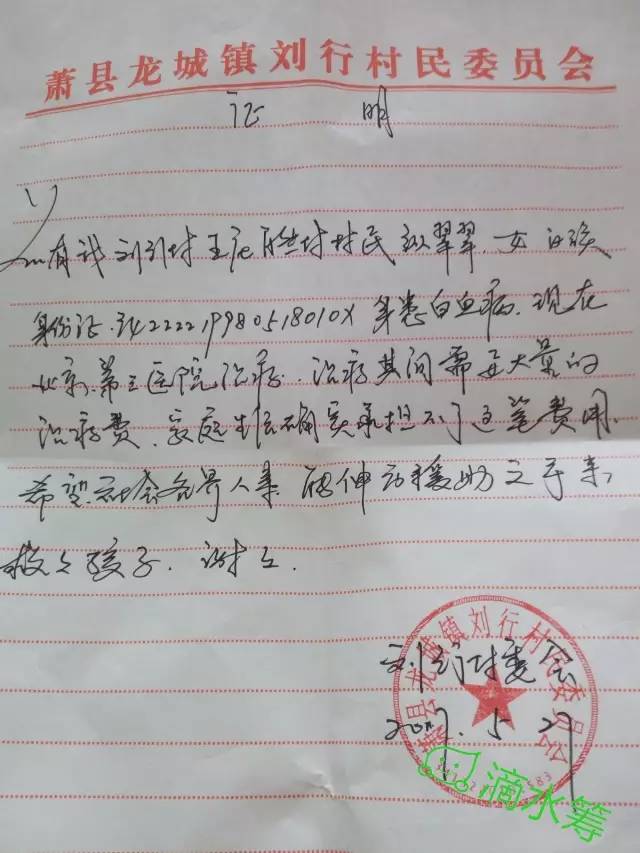 萧县龙城镇刘行村民委员会
证 明
兹有我刘行村王庄自然村村民纵翠翠,女,汉族
身份证:34222219980518010X 身患白血病,现在
北京第三医院治疗,治疗其间需要大量的
治疗费,家庭生活确实承担不了这笔费用,
希望社会各界人来 能伸出援助之手来,
救救孩子,谢谢。
刘行村委会
2017.5.27
萧县龙城镇刘行村民委员会
滴水筹